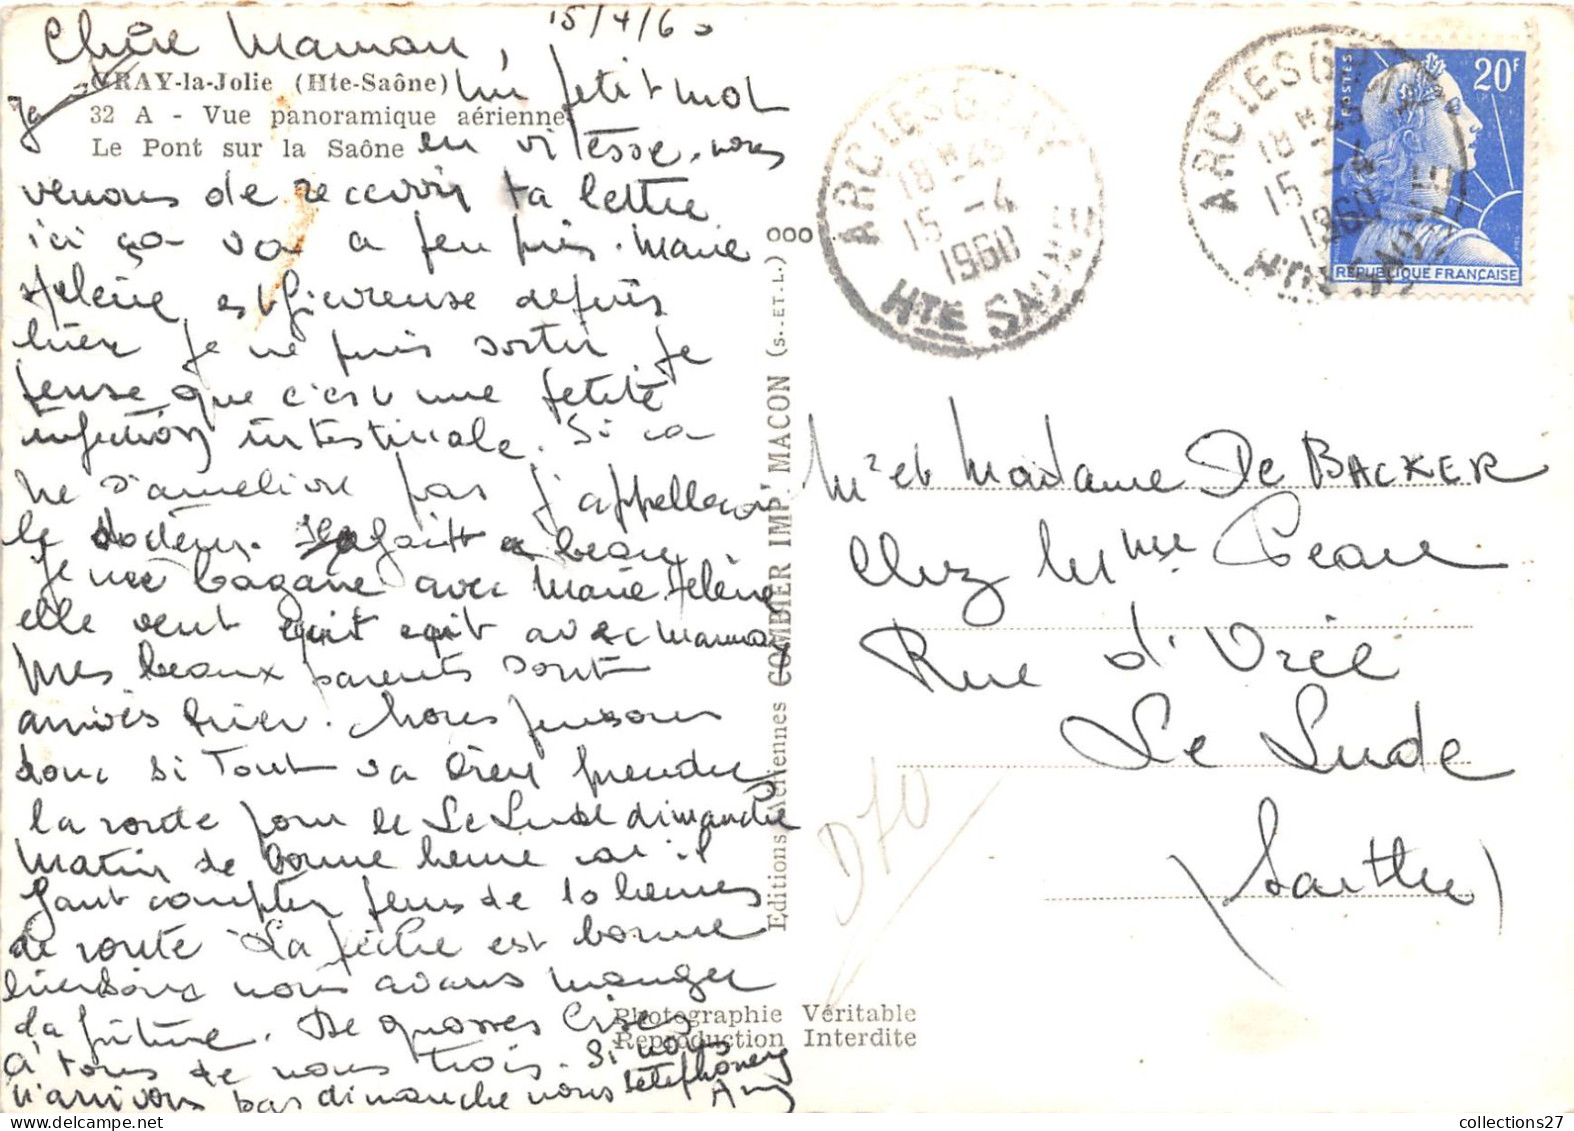 15/4/60
Chère Maman,
GRAY-la-Jolie (Hte-Saône)
32 A - Vue panoramique aérienne
Le Pont sur la Saône
Un petit mot
en vitesse. nous
venons de recevoir ta lettre
ici ça va a peu près. Marie
Hélène est fievreuse depuis
hier je ne puis sortir. je
pense que c'est une petite
infection intestinale. Si ça
ne s'améliore pas j'appellerai
le docteur. Il fait beau
elle veut avec maman
Mes beaux parents sont
arrivés hier. Nous pensons
donc si tout va bien prendre
la route pour le Le Lude dimanche
matin de bonne heure car il
faut compter plus de 10 heures
de route. La pêche est bonne
hier soir nous avons manger
la friture. De grosses bises
à tous de nous trois. Si nous
n'arrivons pas dimanche nous téléphonerez
Any
Editions Aériennes COMBIER IMP. MACON (S.-ET-L.)
Photographie Véritable
Reproduction Interdite
ARC LES GRAY
18H45
15-4
1960
HTE SAONE
ARC LES GRAY
18H45
15-4
1960
HTE SAONE
POSTES
20F
REPUBLIQUE FRANÇAISE
Mr et Madame De BACKER
Chez Mme Peau
Rue d'Orée
Le Lude
(Sarthe)
D70
collections27